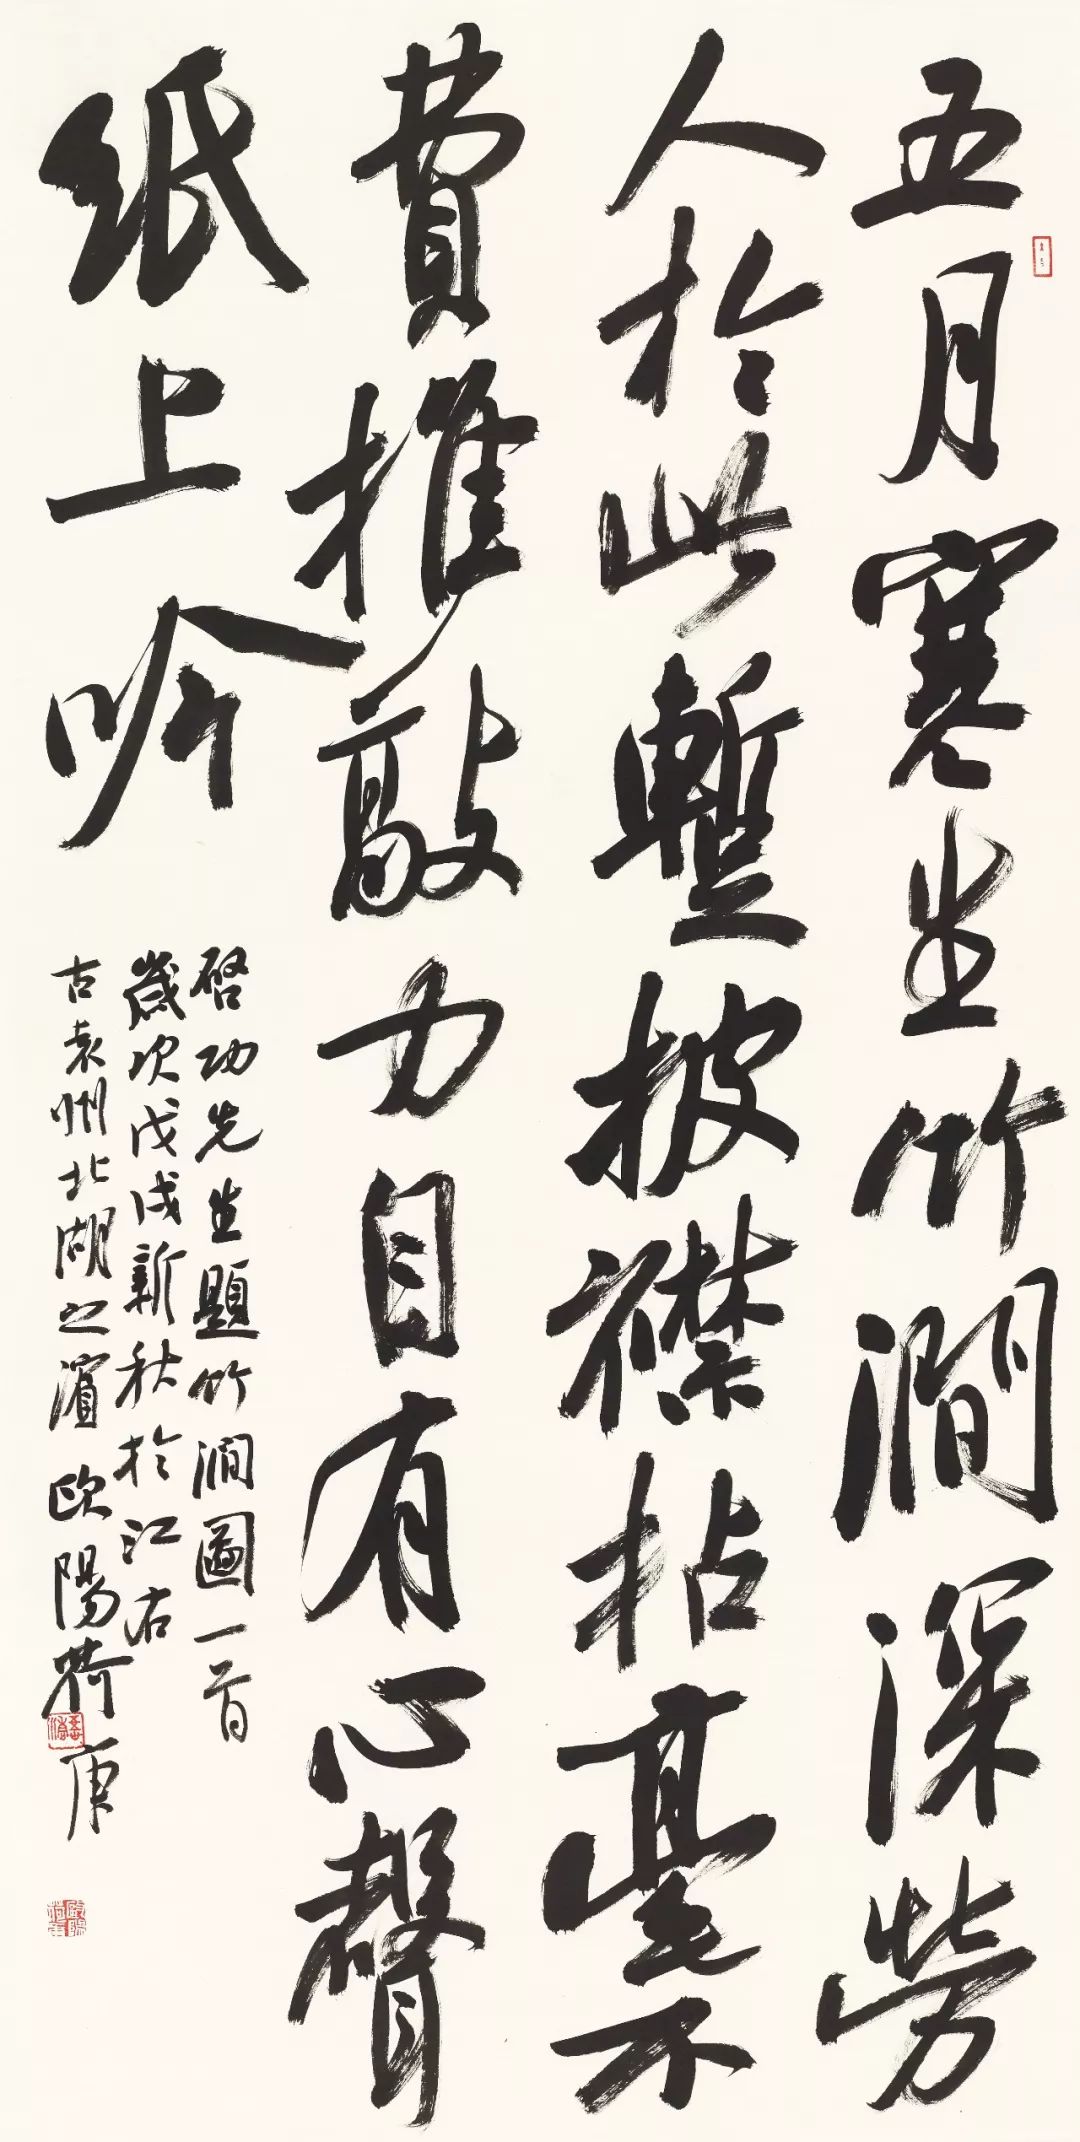 五月寒生竹澗深勞
人於此暫披襟拈豪不
費推敲力自有心聲
紙上吟
啓功先生題竹澗圖一首
歲次戊戌新秋於江右
古袁州北湖之濱歐陽荷庚